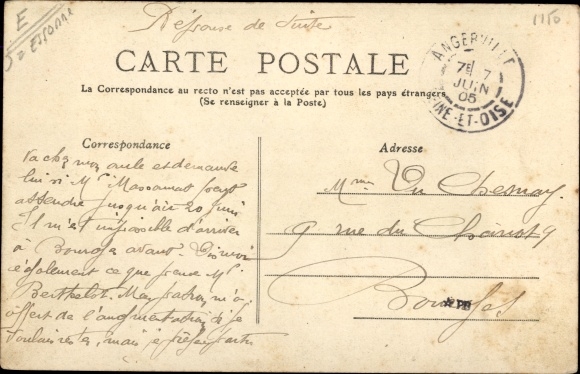 E
S. Essonne
1150
Réponse de Suite
CARTE POSTALE
La Correspondance au recto n'est pas acceptée par tous les pays étrangers
(Se renseigner à la Poste)
ANGERVILLE
7E 7
JUIN
05
SEINE-ET-OISE
Correspondance
Va chez mon oncle et demande
lui si Mr Massamat peut
attendre jusqu'au 20 juin
Il m'est impossible d'arriver
à Bourges avant. Dis moi
également ce que pense Mr
Berthelot. Mon patron m'a
offert de l'augmentation si je
voulais rester, mais je préfère partir
Adresse
Mme Du Chesnay
9 rue du
Bourges